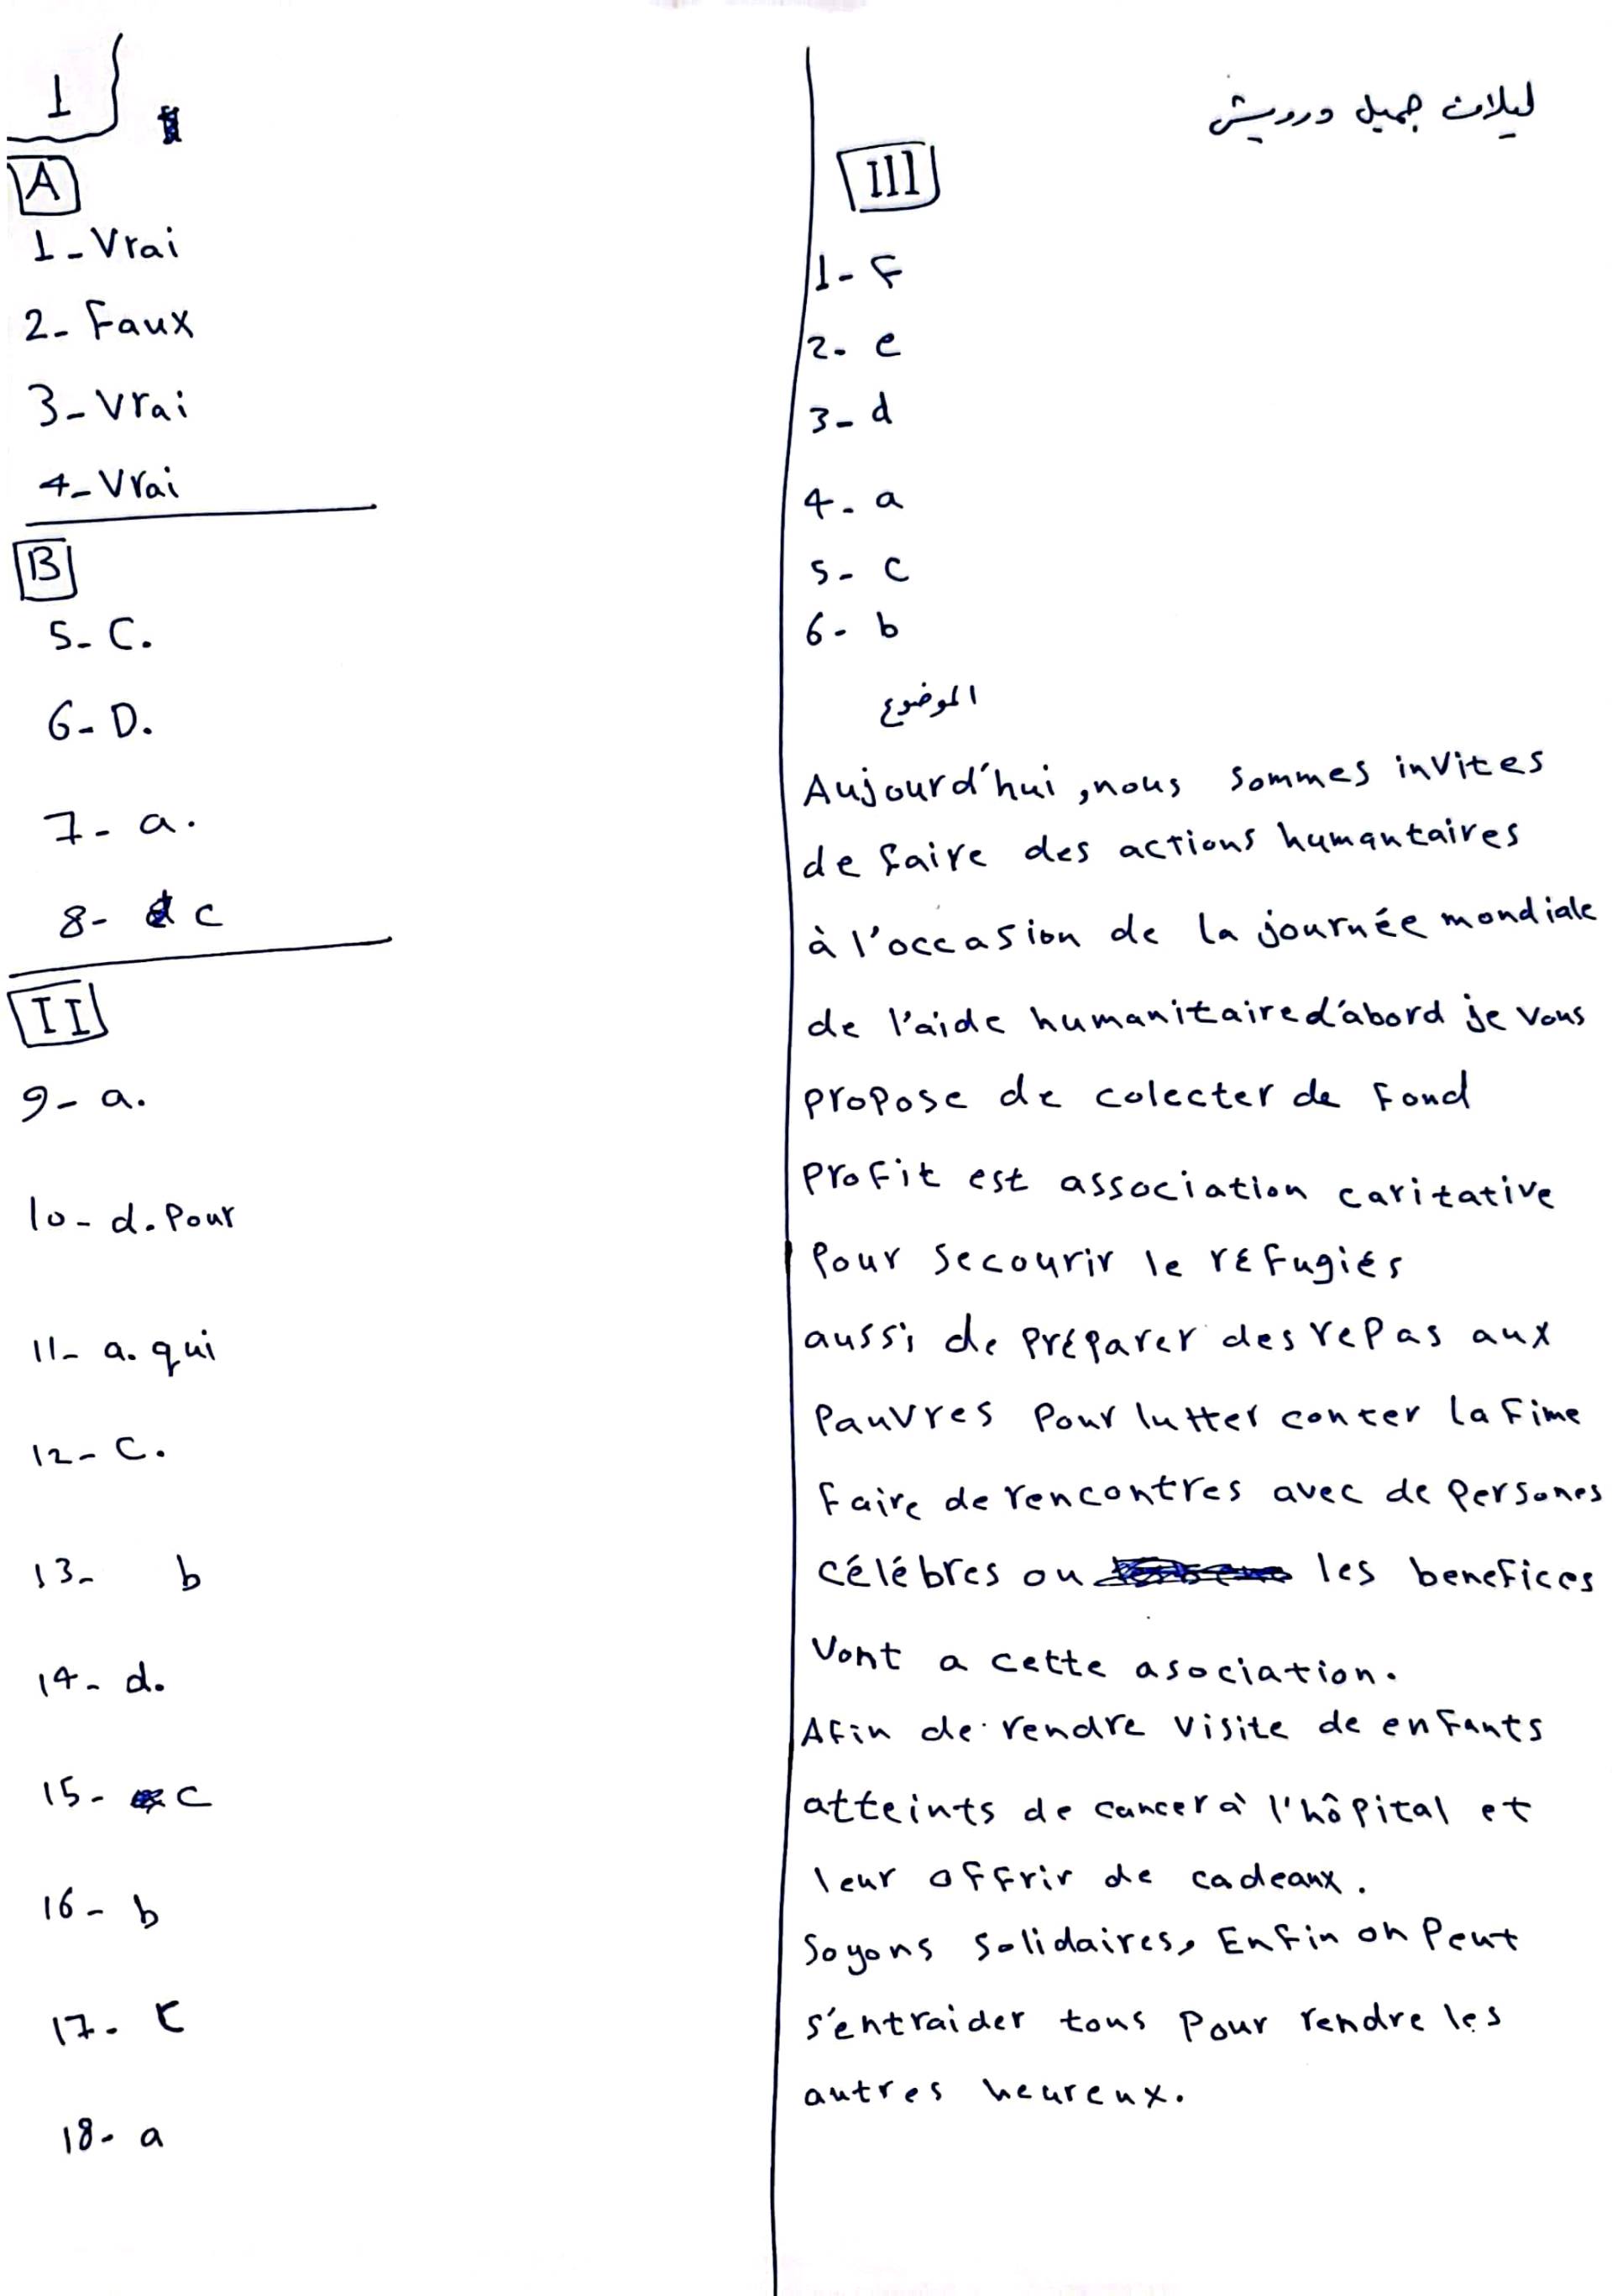 1
A
1- Vrai
2- Faux
3- Vrai
4- Vrai
B
5- C.
6- D.
7- a.
8- c
II
9- a.
10- d. Pour
11- a. qui
12- C.
13- b
14- d.
15- c
16- b
17- c
18- a
ليلان جميل درويش
III
1- F
2- e
3- d
4- a
5- c
6- b
الموضوع
Aujourd'hui, nous sommes invites
de faire des actions humantaires
à l'occasion de la journée mondiale
de l'aide humanitaire d'abord je vous
propose de colecter de fond
profit est association caritative
pour secourir le réfugiés
aussi de préparer des repas aux
pauvres pour lutter conter la fime
faire de rencontres avec de persones
célébres ou les benefices
vont a cette asociation.
Afin de rendre visite de enfants
atteints de cancer à l'hôpital et
leur offrir de cadeaux.
Soyons solidaires, Enfin on peut
s'entraider tous pour rendre les
autres heureux.